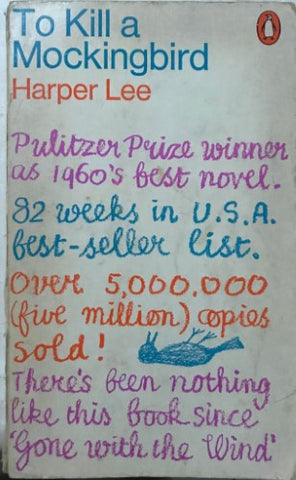 To Kill a
Mockingbird
Harper Lee
Pulitzer Prize winner
as 1960's best novel.
82 weeks in U.S.A.
best-seller list.
Over 5,000,000
(five million) copies
sold!
There's been nothing
like this book since
'Gone with the Wind'